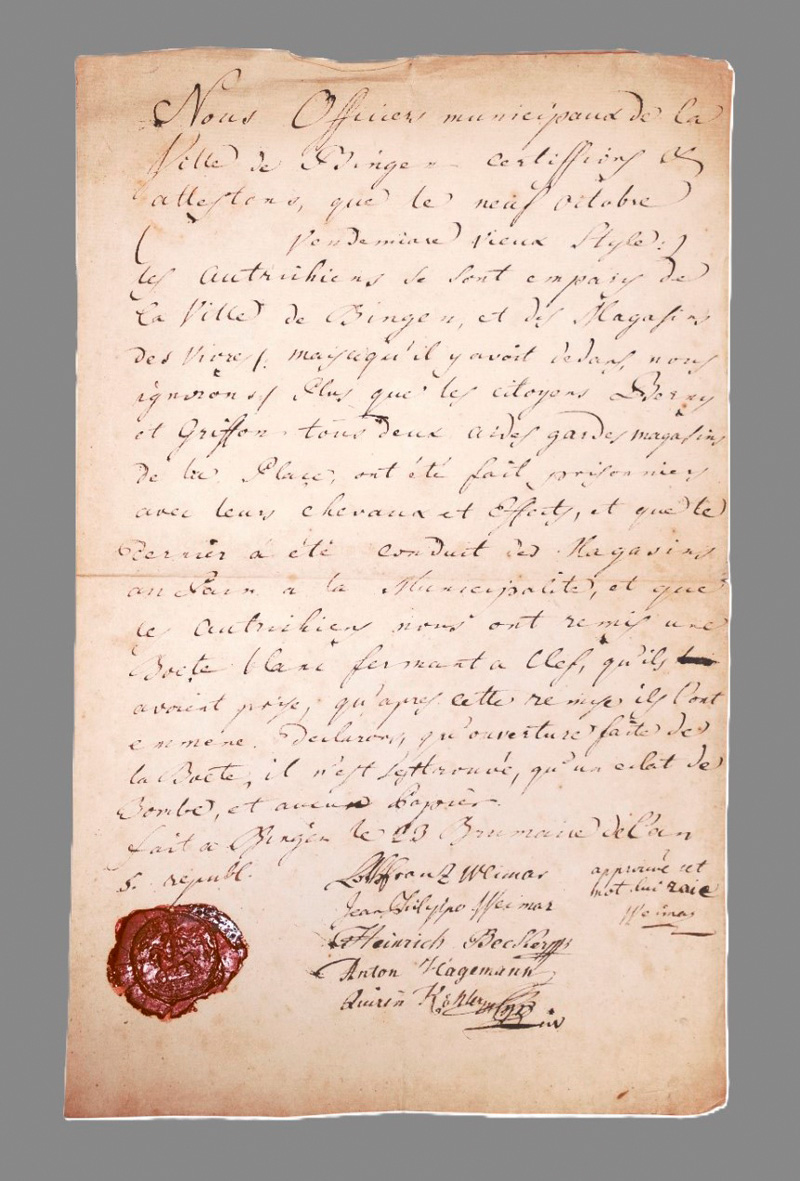 Nous Officiers municipaux de la
Ville de Bingen certiffions &
attestons, que le neuf octobre
( vendemiare vieux Style:)
les Autrichiens se sont emparés de
la Ville de Bingen, et des Magasins
des vivres /. mais qu'il y avoit dedans, nous
ignorons / Plus que les citoyens Borny
et Griffon tous deux aides gardes magasins
de la Place, ont été fait prisonniers
avec leurs chevaux et Effects, et que le
Dernier a été conduit des Magasins
au Pain a la Municipalité, et que
les Autrichiens nous ont remis une
Boete blanc fermant a Clef, qu'ils
avoient prise, qu'apres cette remise ils l'ont
emmene. Declarons, qu'ouverture faite de
la Boete, il n'est sestrouvé, qu'un eclat de
Bombe, et aucun Papier.
fait a Bingen le 23 Brumaire de l'an
5. republ.
Franz Weimar
approuvé cet
mot lui raie
Weimar
Jean Philippe Weimar
Heinrich Becker
Anton Hagemann
Quirin Köhler